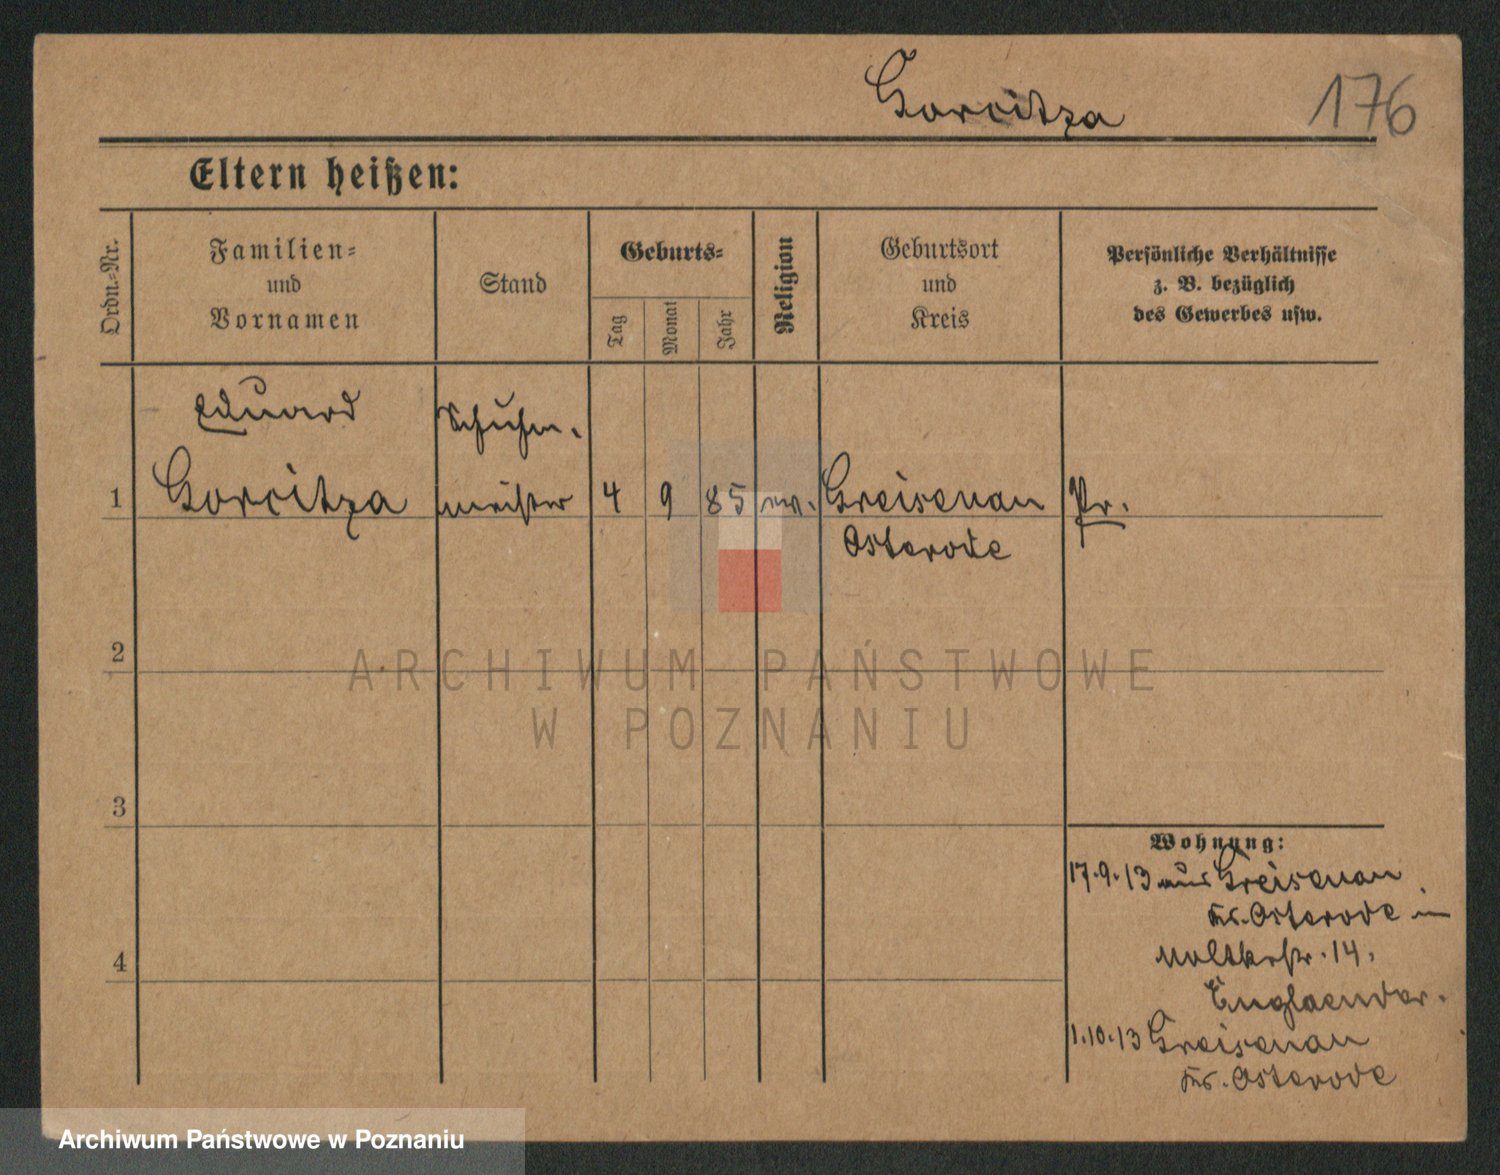 Gorcitza
176
Eltern heißen:
Ordn.-Nr.
Familien-
und
Vornamen
Stand
Geburts-
Tag
Monat
Jahr
Religion
Geburtsort
und
Kreis
Persönliche Verhältnisse
z. B. bezüglich
des Gewerbes usw.
Eduard
Schuhm.
1
Gorcitza
meister
4
9
85
ev.
Greisenau
Pr.
Osterode
2
ARCHIWUM PAŃSTWOWE
W POZNANIU
3
Wohnung:
17.9.13 aus Greisenau
Kr. Osterode in
Moltkestr. 14.
Englaender.
4
1.10.13 Greisenau
Kr. Osterode
Archiwum Państwowe w Poznaniu